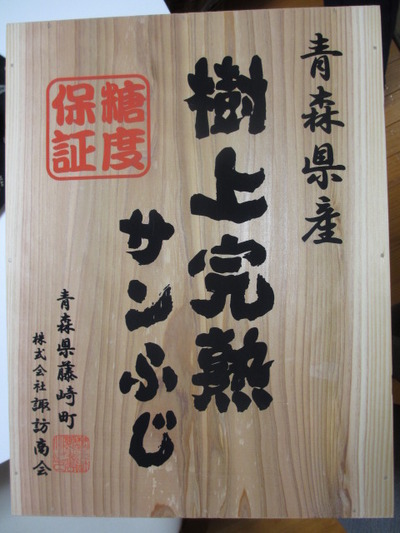 青森県産
樹上完熟
サンふじ
糖度
保証
青森県藤崎町
株式会社諏訪商会